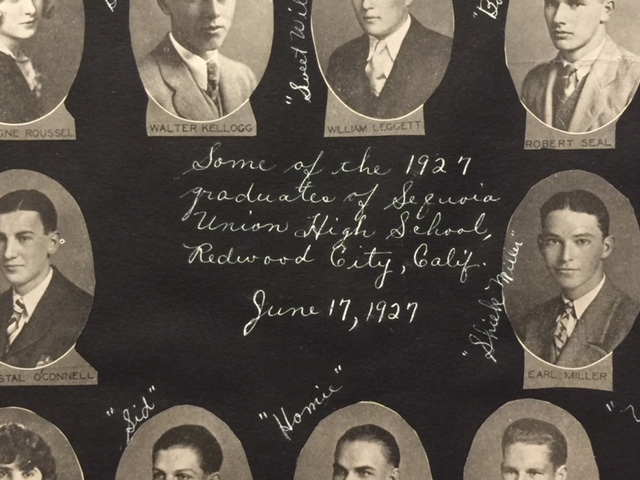 "Sweet Wil
GNE ROUSSEL
WALTER KELLOGG
WILLIAM LEGGETT
ROBERT SEAL
Some of the 1927
graduates of Sequoia
Union High School,
Redwood City, Calif.
June 17, 1927
"Shiek Miller"
STAL O'CONNELL
EARL MILLER
"Sid"
"Homie"